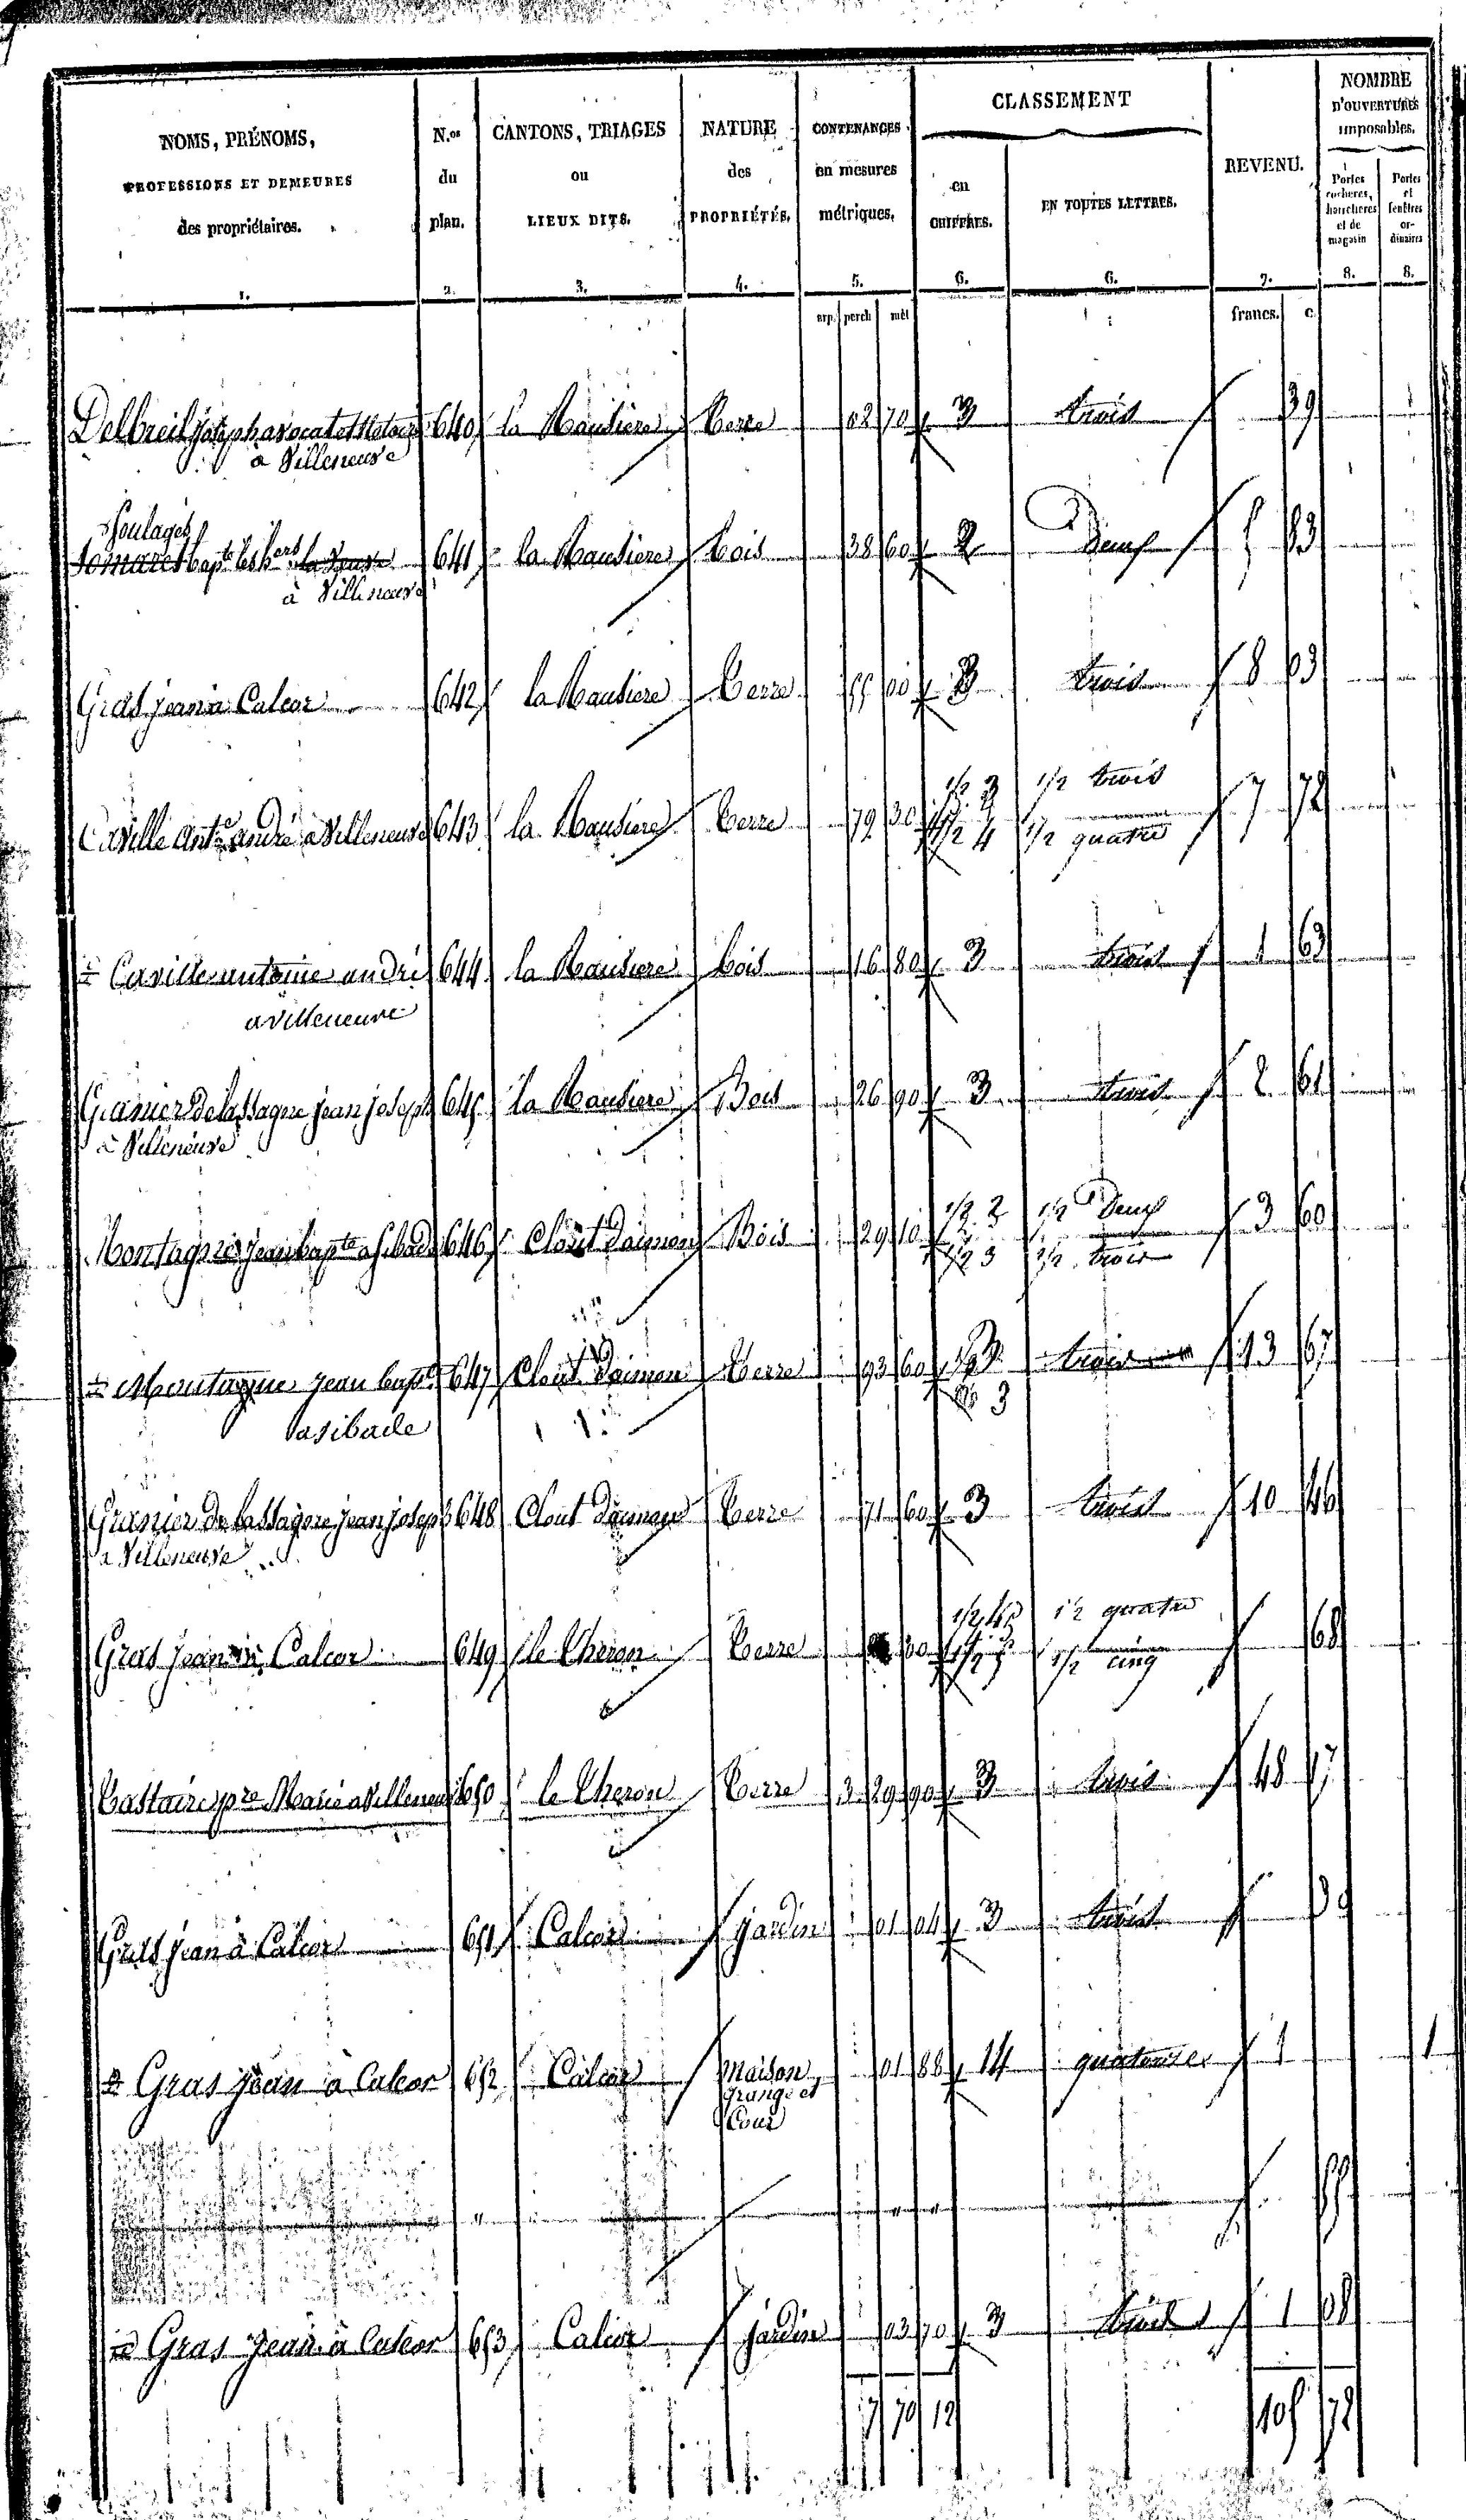 NOMS, PRÉNOMS,
PROFESSIONS ET DEMEURES
des propriétaires.
1.
N.os
du
plan.
2.
CANTONS, TRIAGES
ou
LIEUX DITS.
3.
NATURE
des
PROPRIÉTÉS.
4.
CONTENANCES
en mesures
métriques.
5.
arp. perch mèt
CLASSEMENT
en
CHIFFRES.
6.
EN TOUTES LETTRES.
6.
REVENU.
7.
francs. c.
NOMBRE
D'OUVERTURES
imposables.
Portes
cochères,
et de
magasin
8.
Portes
et
fenêtres
or-
dinaires
8.
Delbreil Joseph avocat et 640 la Maudiere Terre 02 70 3 trois 39
à Villeneuve
Soulages
Bapte les hers la veuve 641 la Maudiere bois 38 60 2 Deux 5 83
à Villeneuve
Gras jean a Calcor 642 la Maudiere Terre 55 3 trois 8 03
1/2 3 1/2 trois
Caville Ante andré a Villeneuve 643 la Maudiere Terre 79 30 7 72
1/2 4 1/2 quatre
= Caville antoine andré 644 la Maudiere bois 16 80 3 trois 1 63
a villeneuve
Granier de lassagne jean joseph 645 la Maudiere Bois 26 90 3 trois 2 61
à Villeneuve
1/2 2 1/2 Deux
jean bapte 646 Clout Daimon Bois 29 10 3 60
1/2 3 1/2 trois
= Montagne jean bapte 647 Clout Daimon Terre 93 60 3 trois 13 67
3
Granier de lassagne jean joseph 648 Clout Daimon Terre 71 60 3 trois 10 46
a Villeneuve
1/2 4 1/2 quatre
Gras jean à Calcor 649 le Cheron Terre 68
1/2 5 1/2 cinq
pre Marie a Villeneuve 650 le Cheron Terre 3 29 90 3 trois 48 17
Gras jean à Calcor 651 Calcor jardin 01 04 3 trois
= Gras jean à Calcor 652 Calcor Maison, 01 88 14 quatorze 1 1
Grange et
Cour
= Gras jean à Calcor 653 Calcor jardin 03 70 3 trois 1 08
7 70 12 105 72